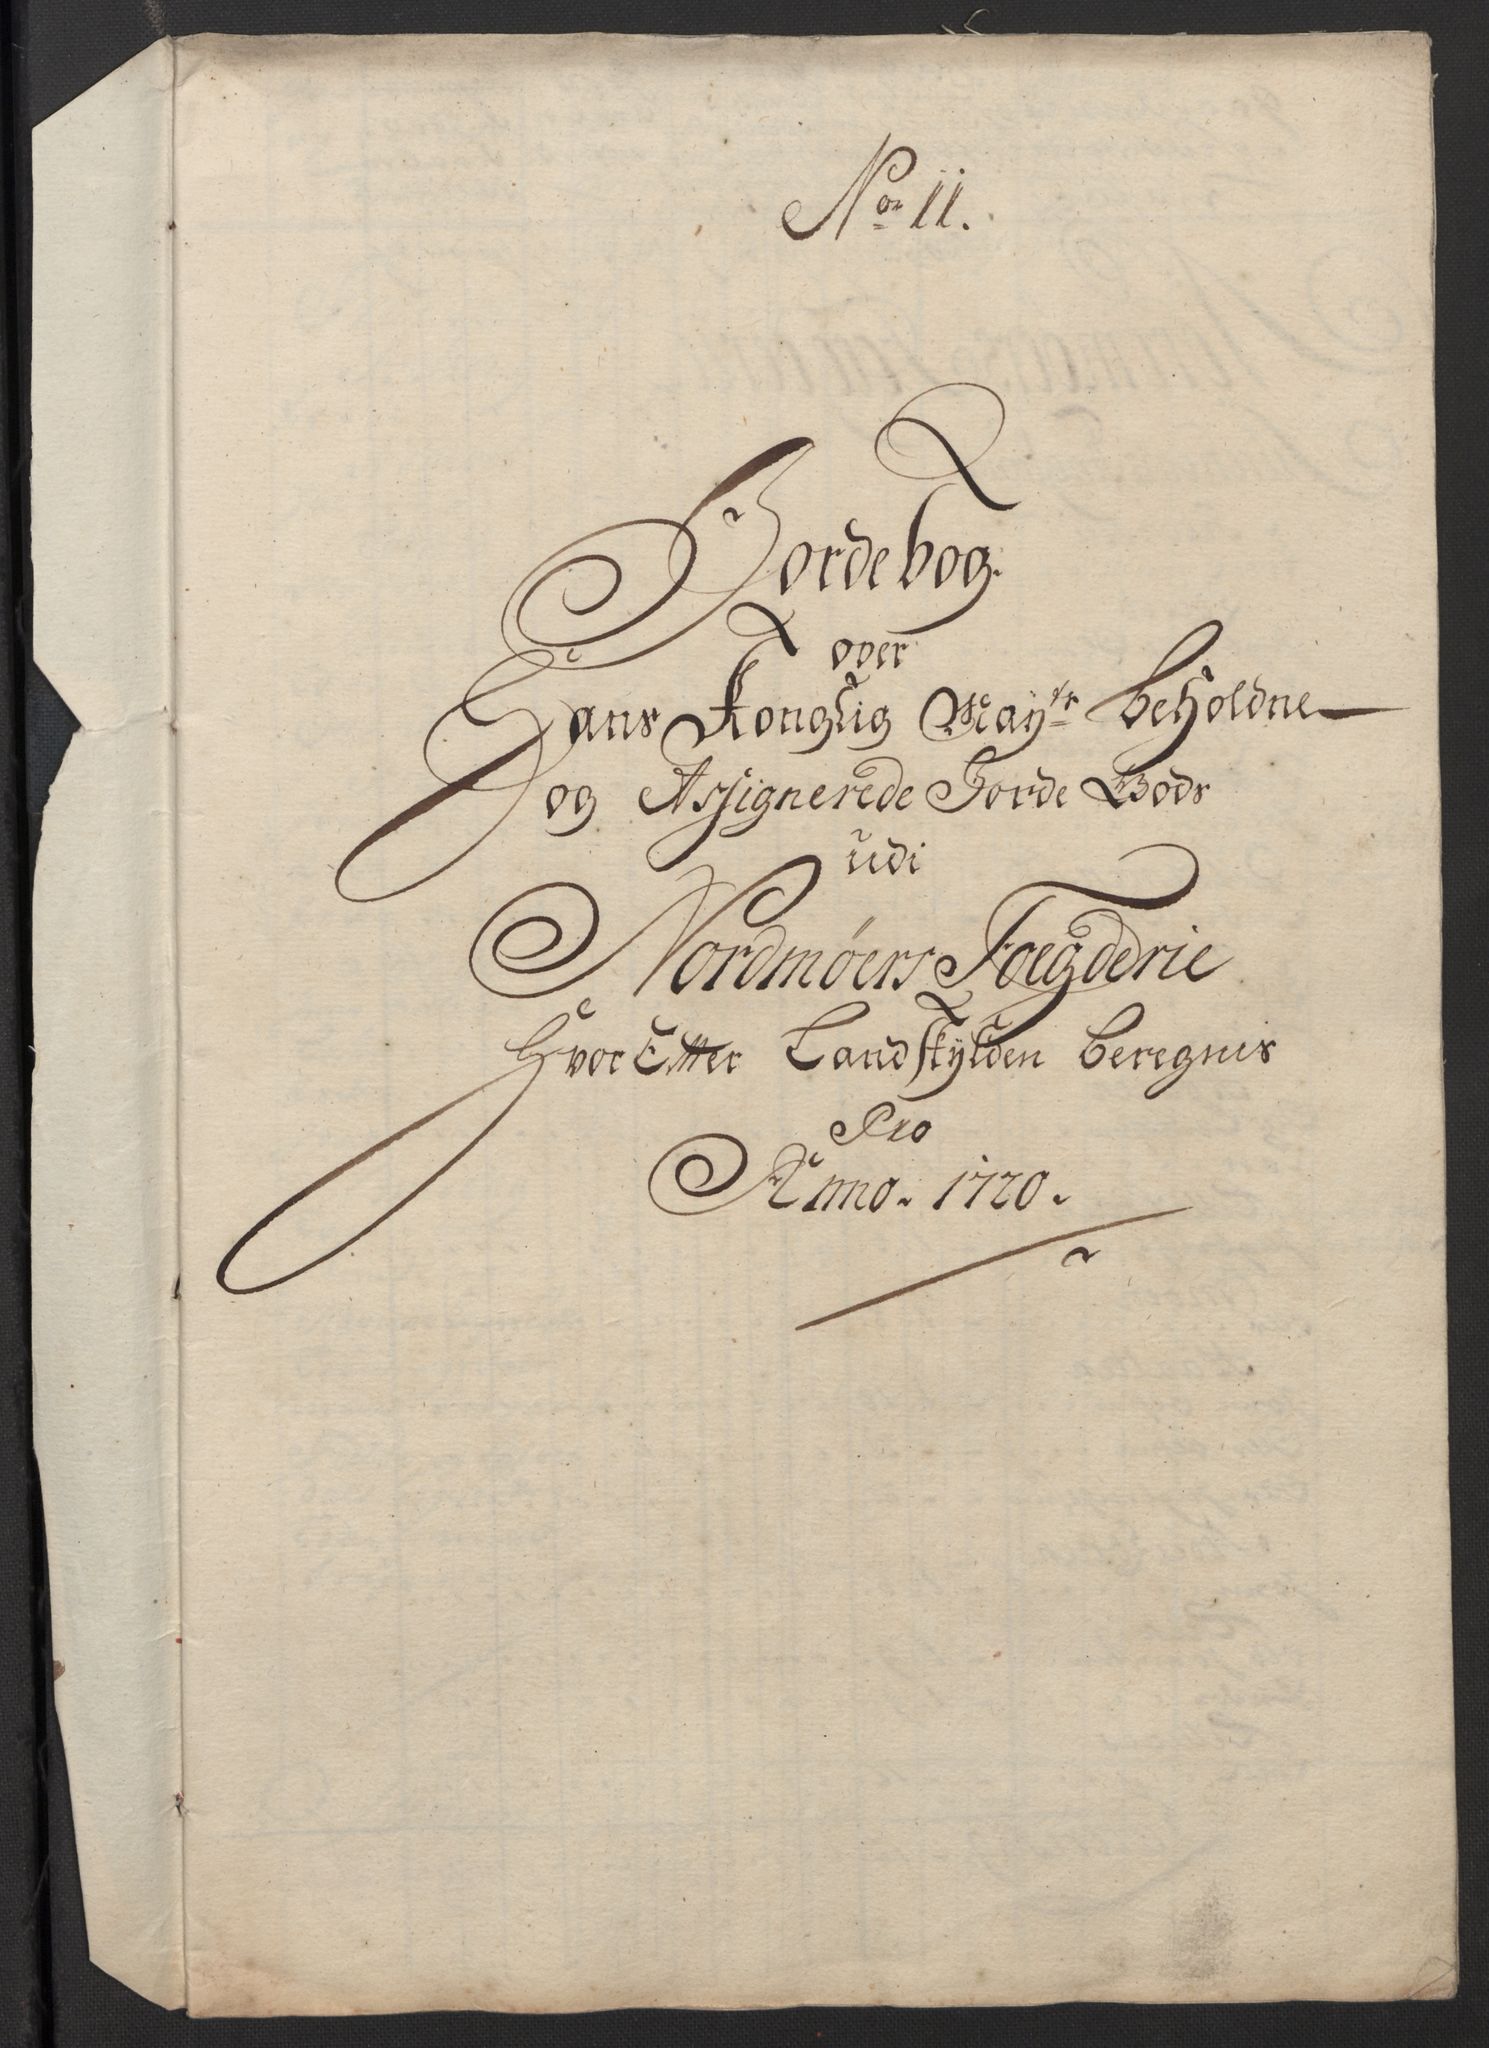 No 11.
Jordebog
over
Hans Konglig Mayts beholdne
og Assignerede Jorde Gods
udi
Nordmøers Foegderie
Hvor Efter Landskylden beregnis
Pro
Anno. 1720.